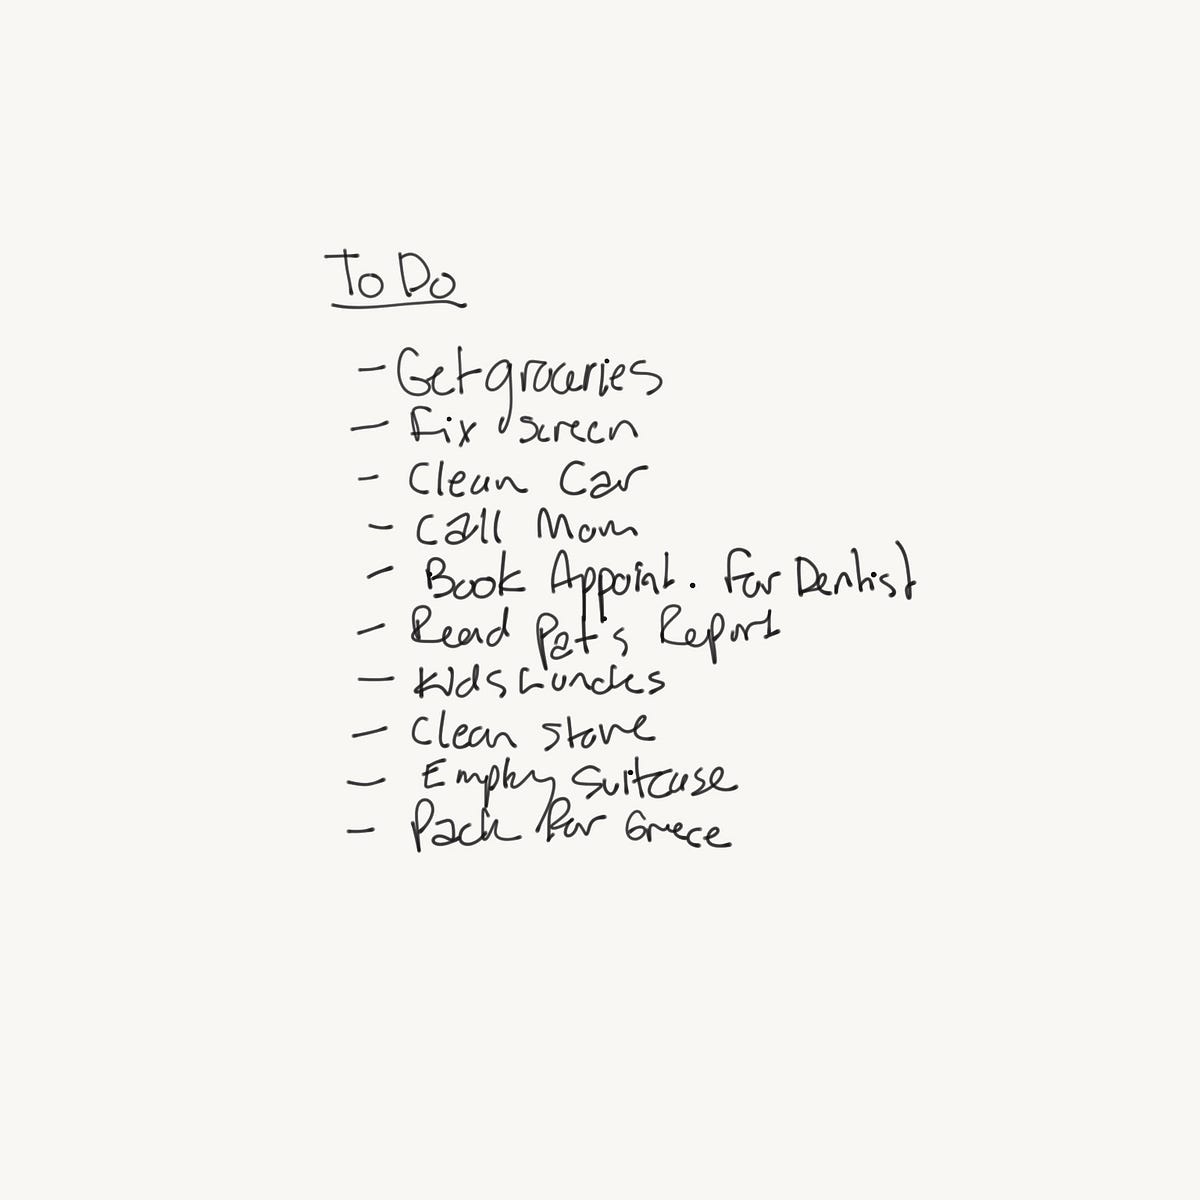 To Do
- Get groceries
- Fix screen
- Clean Car
- Call Mom
- Book Appoint. for Dentist
- Read Pat's Report
- Kids Lunches
- Clean stove
- Empty Suitcase
- Pack for Greece